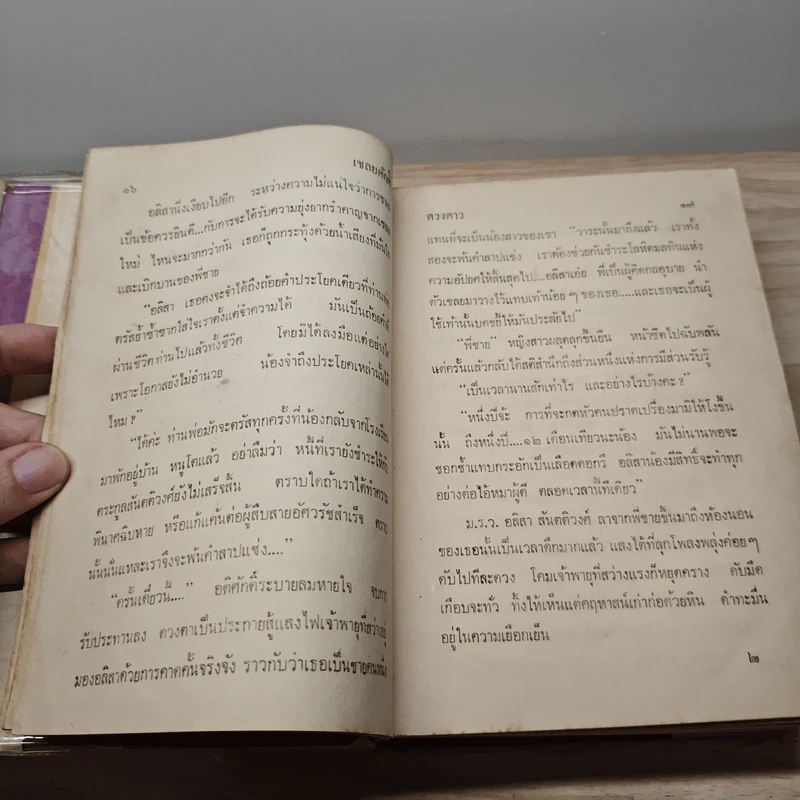 ๑๖
เชลยศักดิ์
อลิสานิ่งเงียบไปอีก ระหว่างความไม่แน่ใจว่าการ
เป็นข้อควรยินดี...กับการจะได้รับความยุ่งยากรำคาญจาก
ใหม่ ไหนจะมากกว่ากัน เธอก็ถูกกระทุ้งด้วยน้ำเสียงที่
และเบิกบานของพี่ชาย
“อลิสา เธอคงจะจำได้ถึงถ้อยคำประโยคเดียวที่ท่านพ่อ
ตรัสย้ำซ้ำซากใส่ใจเราตั้งแต่จำความได้ มันเป็นถ้อยคำที่
ผ่านชีวิตท่านไปแล้วทั้งชีวิต โดยมิได้ลงมือแต่อย่างใด
เพราะโอกาสยังไม่อำนวย น้องจำถึงประโยคเหล่านั้นได้
ไหม ?”
“ได้ค่ะ ท่านพ่อมักจะตรัสทุกครั้งที่น้องกลับจากโรงเรียน
มาพักอยู่บ้าน หนูโตแล้ว อย่าลืมว่า หนี้ที่เรายังชำระให้กับ
ตระกูลสันตติวงศ์ยังไม่เสร็จสิ้น ตราบใดถ้าเราได้ทำความ
พินาศฉิบหาย หรือแก้แค้นต่อผู้สืบสายอัศวรัชสำเร็จ ตราบ
นั้นนั่นแหละเราจึงจะพ้นคำสาปแช่ง....”
“ครั้นเดี๋ยวนี้....” อติศักดิ์ระบายลมหายใจ จบการ
รับประทานลง ดวงตาเป็นประกายสู้แสงไฟเจ้าพายุที่สว่างอยู่
มองอลิสาด้วยการคาดคั้นจริงจัง ราวกับว่าเธอเป็นชายคนหนึ่ง
ดวงดาว
๑๗
แทนที่จะเป็นน้องสาวของเรา “วาระนั้นมาถึงแล้ว เราทั้ง
สองจะพ้นคำสาปแช่ง เราต้องช่วยกันชำระโลหิตมลทินแห่ง
ความอัปยศให้สิ้นสุดไป....อลิสาเอ๋ย พี่เป็นผู้คิดกลอุบาย นำ
ตัวเชลยมาวางไว้แทบเท้าน้อย ๆ ของเธอ.....และเธอจะเป็นผู้
ใช้เท้านั้นบดขยี้ให้มันประลัยไป”
“พี่ชาย” หญิงสาวผลุดลุกขึ้นยืน หน้าซีดไปฉับพลัน
แต่ครั้นแล้วกลับได้สติสำนึกถึงส่วนหนึ่งแห่งการมีส่วนรับรู้
“เป็นเวลานานสักเท่าไร และอย่างไรบ้างคะ ?”
“หนึ่งปีจ้ะ การที่จะกดหัวคนปราดเปรื่องมามิให้โงขึ้น
นั้น ถึงหนึ่งปี....๑๒ เดือนเทียวนะน้อง มันไม่นานพอจะ
ชอกช้ำแทบกระอักเป็นเลือดดอกรึ อลิสาน้องมีสิทธิ์จะทำทุก
อย่างต่อไอ้หมาผู้ดี ตลอดเวลานี้ทีเดียว”
ม.ร.ว. อลิสา สันตติวงศ์ ลาจากพี่ชายขึ้นมาถึงห้องนอน
ของเธอนั้นเป็นเวลาดึกมากแล้ว แสงไต้ที่ลุกโพลงพลุ่งค่อย ๆ
ดับไปทีละดวง โคมเจ้าพายุที่สว่างแรงก็หยุดคราง ดับมืด
เกือบจะทั่ว ทิ้งให้เห็นแต่คฤหาสน์เก่าก่อด้วยหิน ดำทะมื่น
อยู่ในความเยือกเย็น
๒